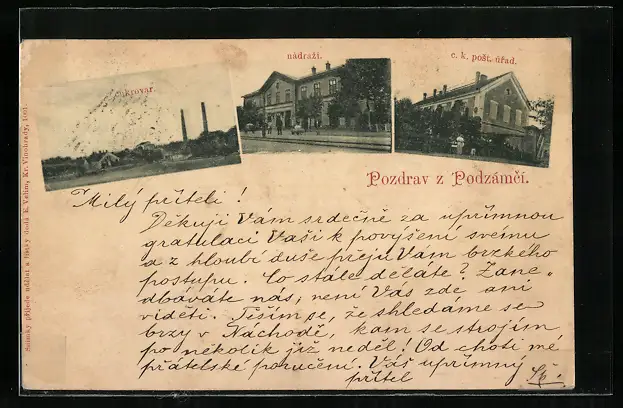 nádraží.
c. k. pošt. úřad.
cukrovar.
Pozdrav z Podzámčí.
Milý příteli!
Děkuji Vám srdečně za upřímnou
gratulaci Vaši k povýšení svému
a z hloubi duše přeju Vám brzkého
postupu. Co stále děláte? Zane„
dbáváte nás, není Vás zde ani
viděti. Těším se, že shledáme se
brzy v Náchodě, kam se strojím
po několik již neděl! Od choti mé
přátelské poručení. Váš upřímný
přítel